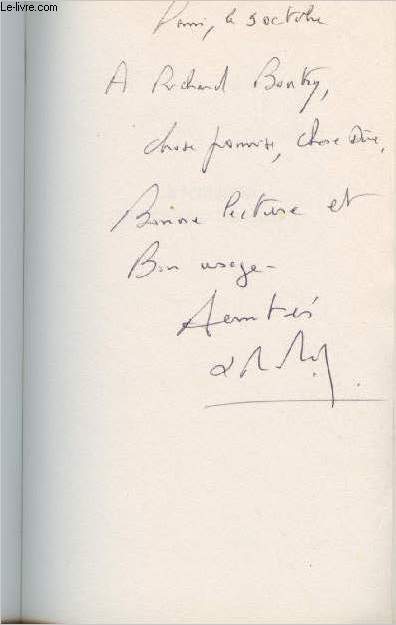 Le-livre.com
Paris, le 9 octobre
A Richard Bontry,
chose promise, chose dûe,
Bonne lecture et
Bon usage -
Amitiés